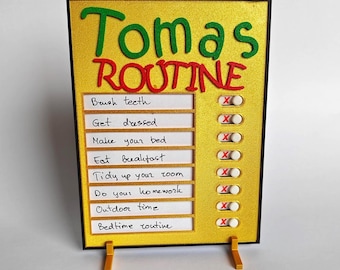 Tomas
ROUTINE
Brush teeth X
Get dressed X
Make your bed X
Eat breakfast X
Tidy up your room X
Do your homework X
Outdoor time X
Bedtime routine X